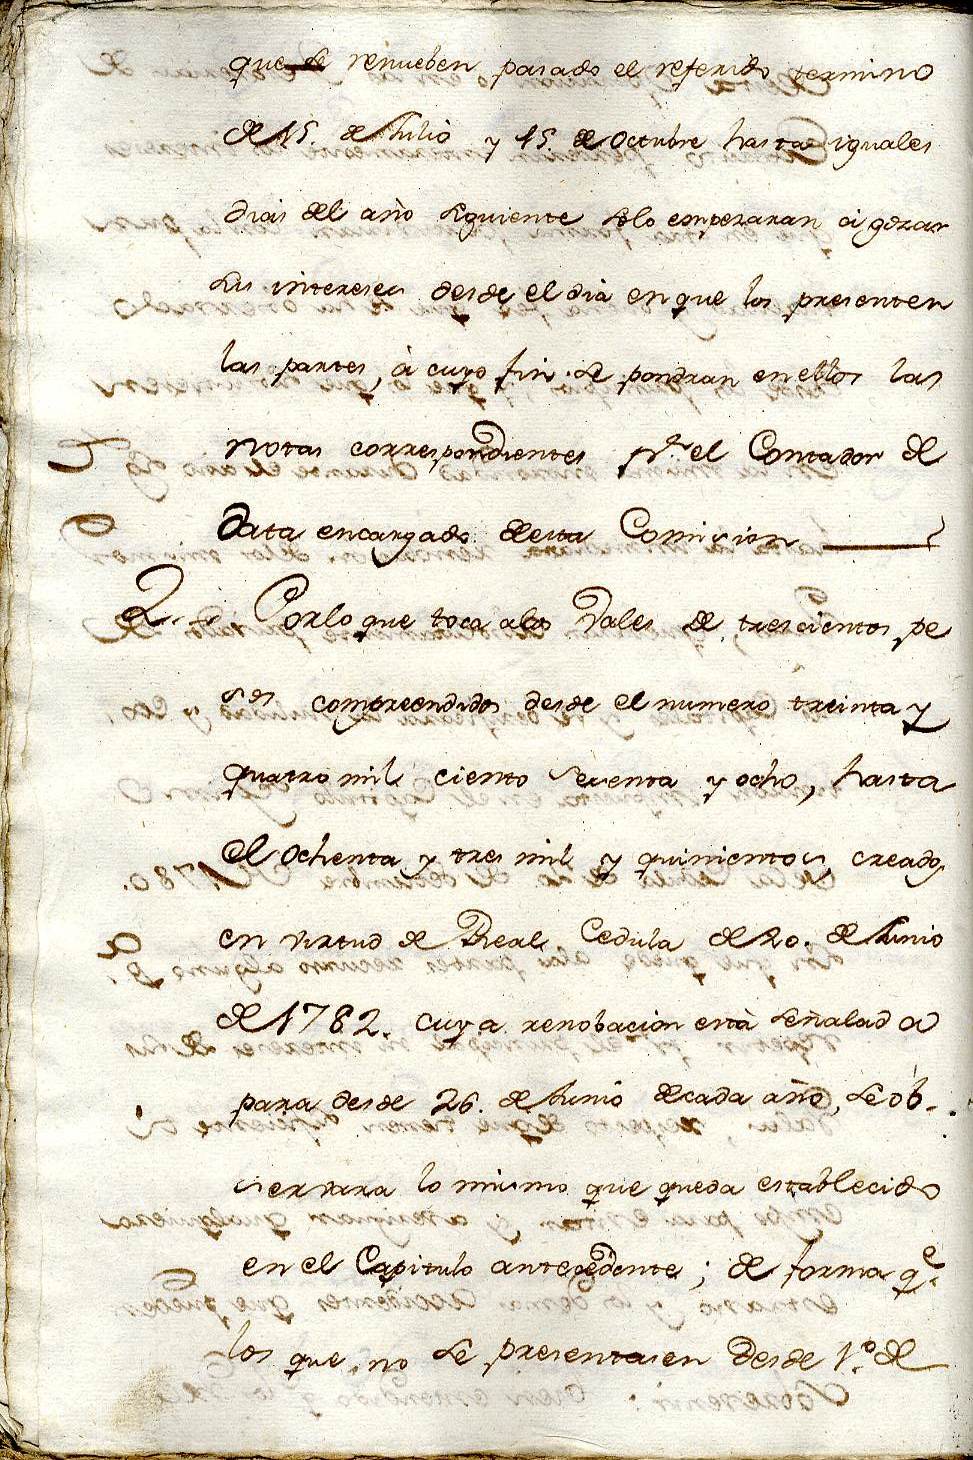 que se renueben pasado el referido termino
de 15. de Julio y 15. de Octubre hasta iguales
dias del año siguiente solo empezaran à gozar
sus intereses desde el dia en que los presenten
las partes, à cuyo fin se pondran en ellos las
notas correspondientes pr. el Contador de
data encargado desta Comision
2.. Por lo que toca alos Vales de trescientos pe
sos comprendidos desde el numero treinta y
quatro mil ciento setenta y ocho, hasta
el ochenta y tres mil y quinientos, creados
en virtud de Real Cedula de 20. de Junio
de 1782. cuya renobacion està señalada
para desde 26. de Junio decada año, se ob-
servara lo mismo que queda establecido
en el Capitulo antecedente; de forma qe.
los que no se presentasen desde 1.º de